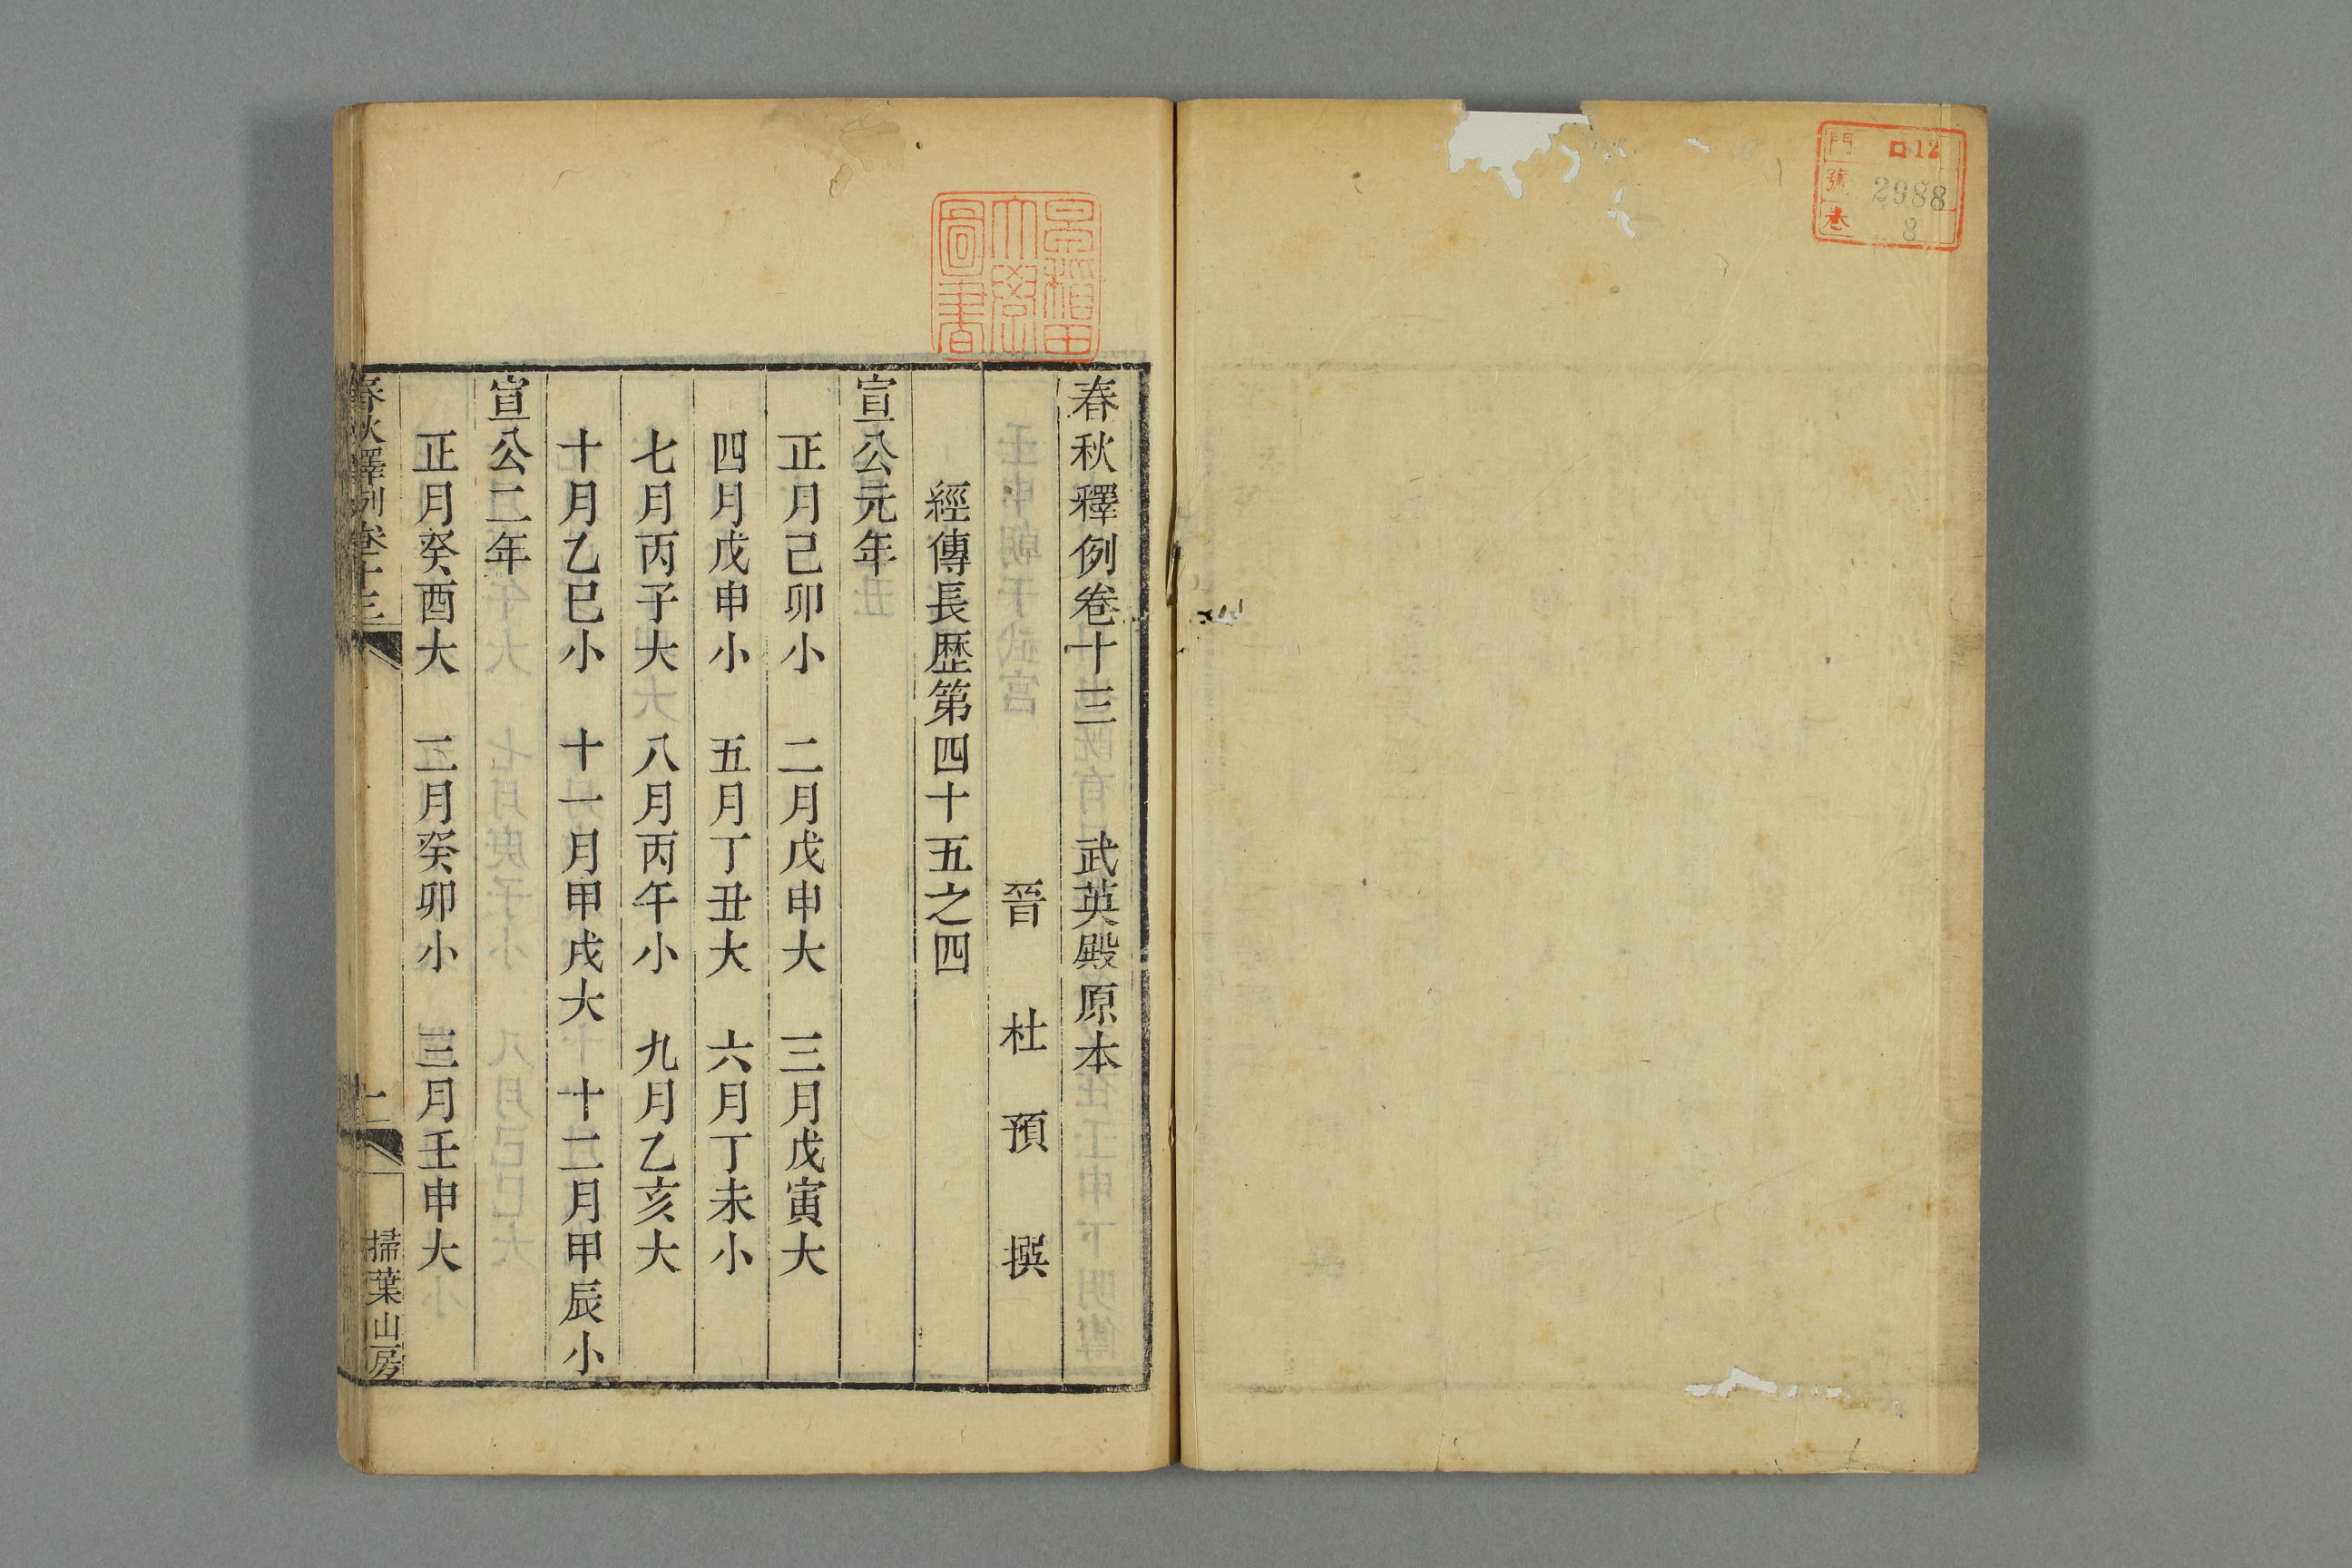 門 ロ12
號 2988
卷 8
早稻田大學圖書
春秋釋例卷十三 武英殿原本
晉 杜 預 撰
經傳長歷第四十五之四
宣公元年
正月己卯小 二月戊申大 三月戊寅大
四月戊申小 五月丁丑大 六月丁未小
七月丙子大 八月丙午小 九月乙亥大
十月乙巳小 十一月甲戌大 十二月甲辰小
宣公二年
正月癸酉大 二月癸卯小 三月壬申大
春秋釋例卷十三
一
掃葉山房